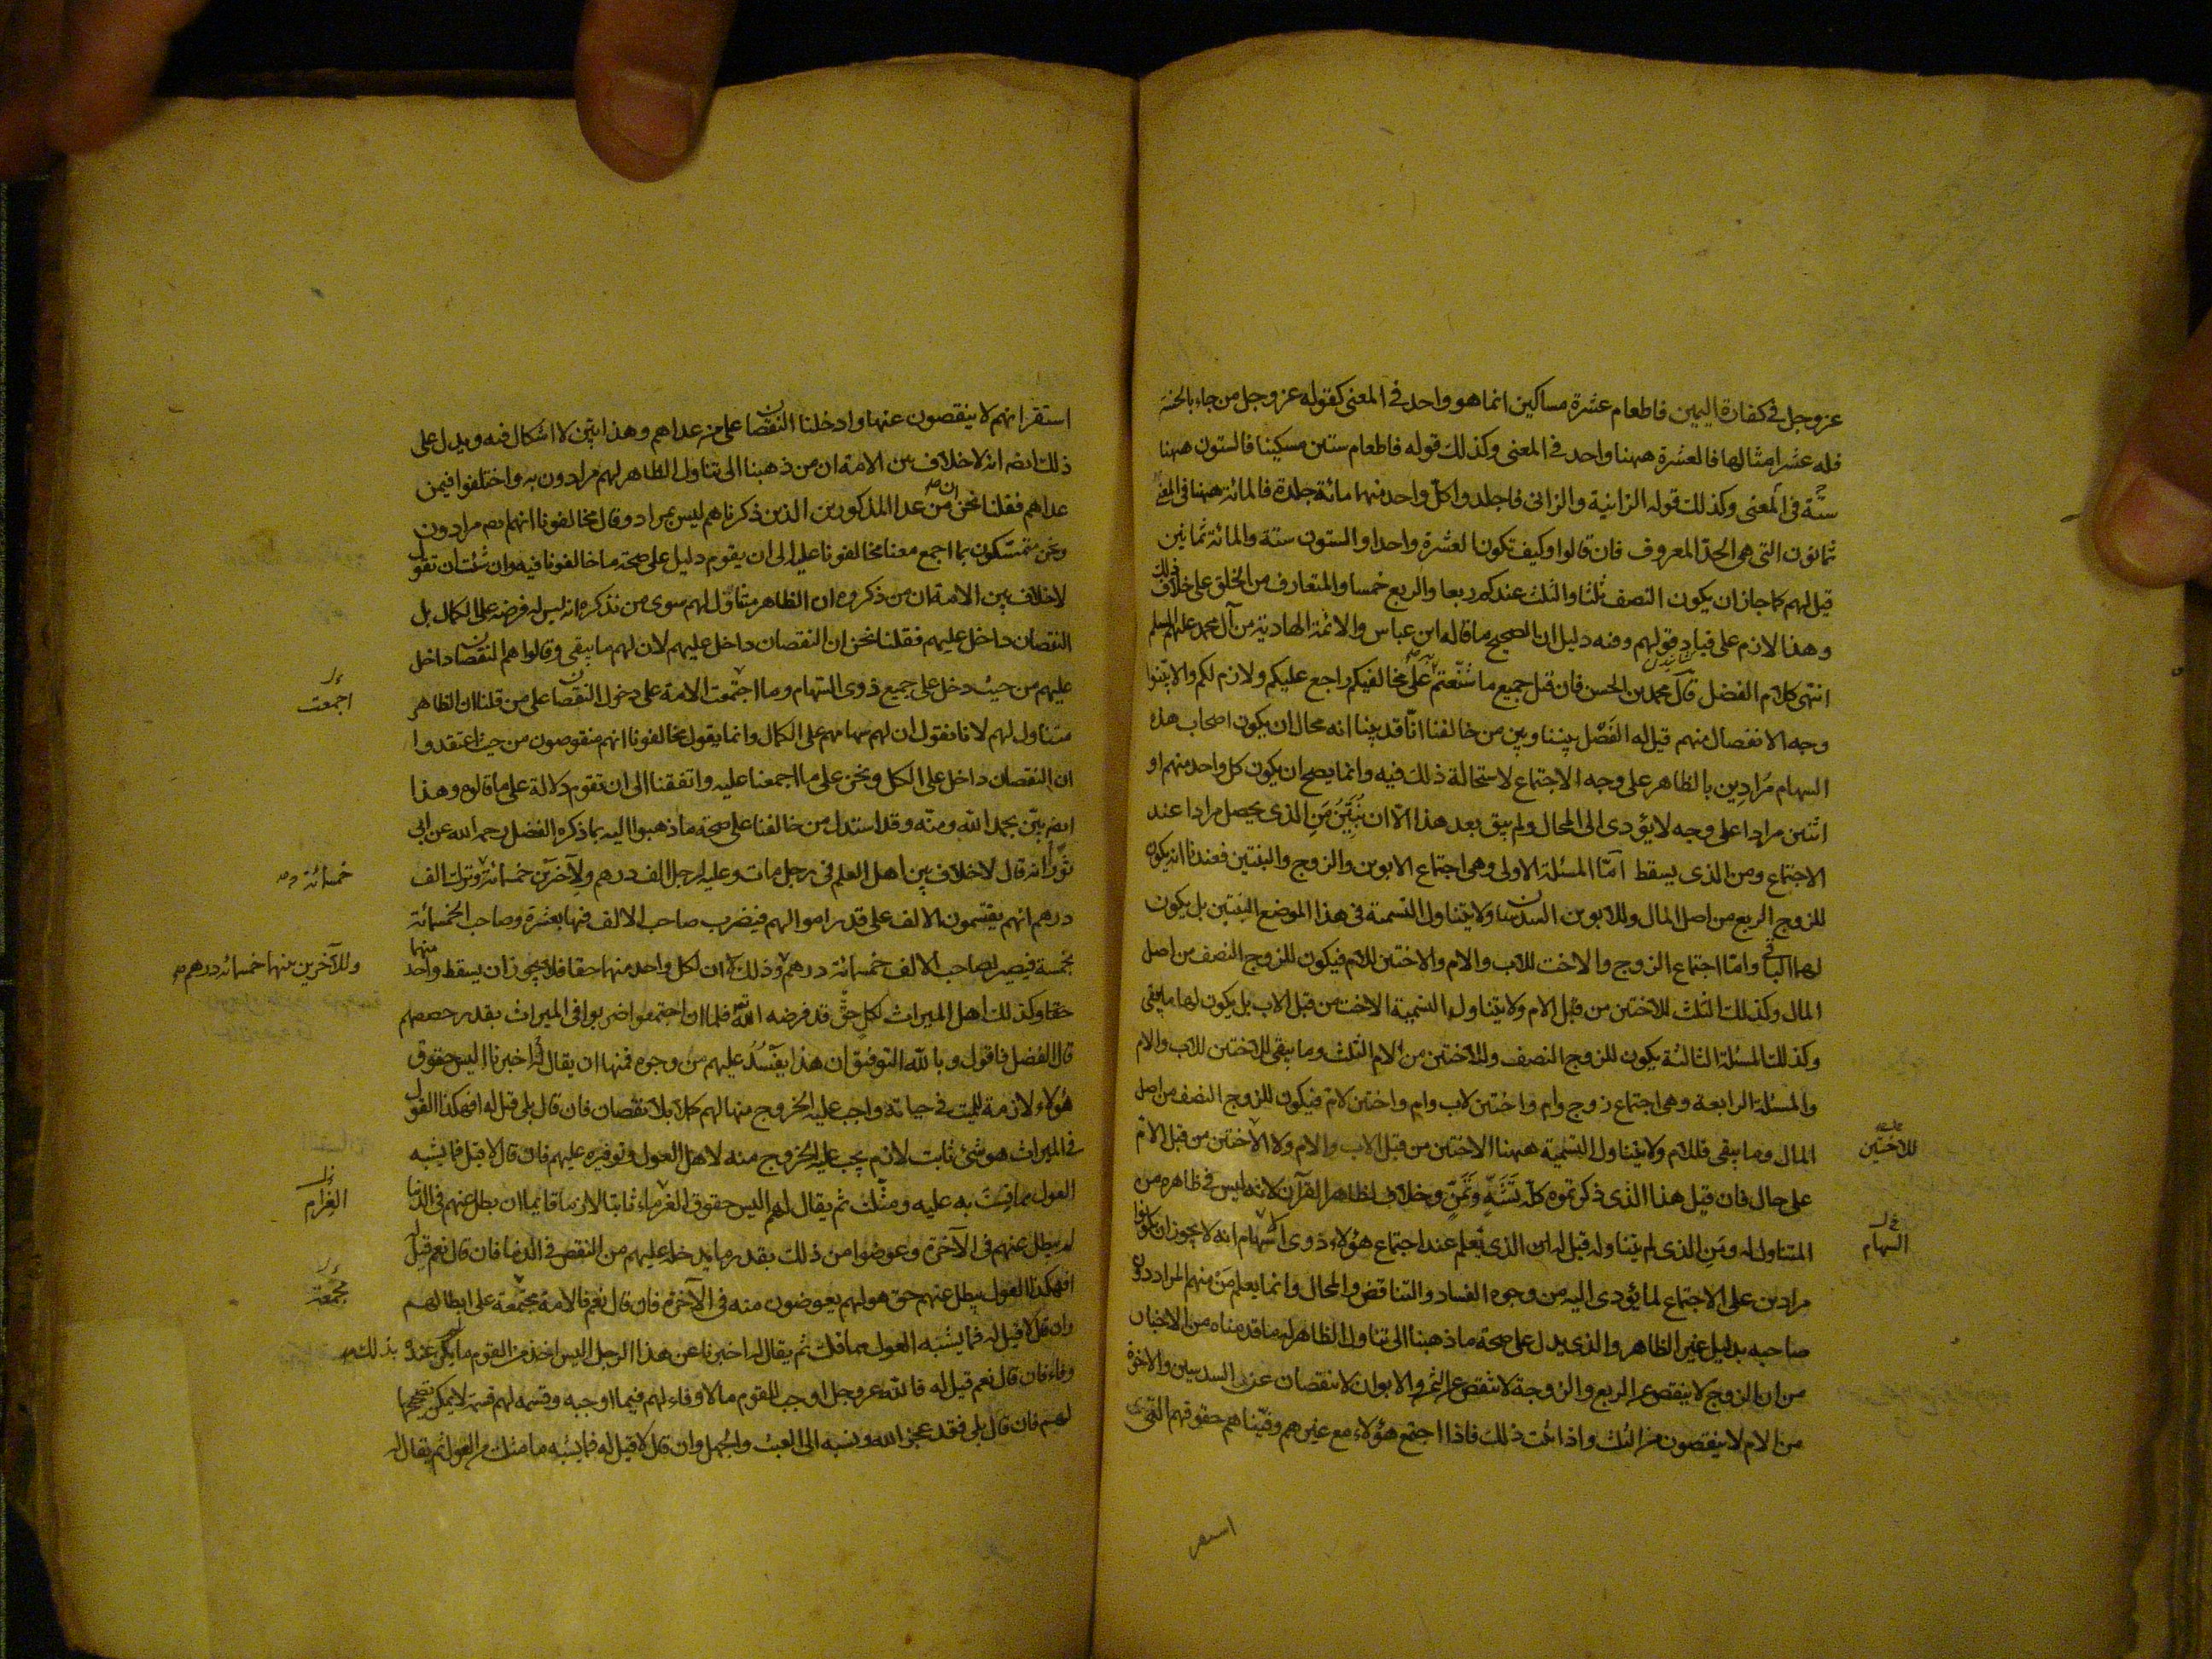 عزوجل في كفارة اليمين فاطعام عشرة مساكين انما هو واحد في المعنى كقوله عزوجل من جاء بالحسنة
فله عشر امثالها فالعشرة ههنا واحد في المعنى وكذلك قوله فاطعام ستين مسكينا فالستون ههنا
ستة في المعنى وكذلك قوله الزانية والزاني فاجلدوا كل واحد منهما مائة جلدة فالمائة ههنا في المعنى
ثمانون التي هي الحد المعروف فان قالوا وكيف تكون العشرة واحدا والستون ستة والمائة ثمانين
قيل لهم كما جاز ان يكون النصف ثلثا والثلث عندكم ربعا والربع خمسا والمتعارف من الخلق على خلاف ذلك
وهذا لازم على قياد قولهم وفيه دليل ان الصحيح ما قاله ابن عباس والائمة الهادية من آل محمد عليهم السلم
انتهى كلام الفضل قال محمد بن الحسن فان قيل جميع ما شنعتم على مخالفيكم راجع عليكم ولازم لكم والا بينوا
وجه الانفصال منهم قيل له الفصل بيننا وبين من خالفنا انا قد بينا انه محال ان يكون اصحاب هذه
السهام مرادين بالظاهر على وجه الاجتماع لاستحالة ذلك فيه وانما يصح ان يكون كل واحد منهم او
اثنين مرادا على وجه لا يؤدى الى المحال ولم يبق بعد هذا الا ان نبين من الذى يحصل مرادا عند
الاجتماع ومن الذى يسقط اما المسئلة الاولى وهى اجتماع الابوين والزوج والبنتين فعندنا انه يكون
للزوج الربع من اصل المال وللابوين السدسان ولا يتناول التسمية في هذا الموضع البنتين بل يكون
لهما الباقي واما اجتماع الزوج والاخت للاب والام والاختين للام فيكون للزوج النصف من اصل
المال وكذلك الثلث للاختين من قبل الام ولا يتناول التسمية الاخت من قبل الاب بل يكون لها ما يبقى
وكذلك المسئلة الثالثة يكون للزوج النصف وللاختين من الام الثلث وما يبقى للاختين للاب والام
والمسئلة الرابعة وهى اجتماع زوج وام واختين لاب وام واختين لام فيكون للزوج النصف من اصل
المال وما يبقى فللام ولا يتناول التسمية ههنا الاختين من قبل الاب والام ولا الاختين من قبل الام
للاختين
على حال فان قيل هذا الذى ذكرتموه كله وخلاف لظاهر القرآن لانه ليس في ظاهره من
المتناول له ومن الذى لم يتناوله قيل له ان الذى يعلم عند اجتماع هؤلاء ذوى السهام انه لا يجوز ان يكونوا
السهام
مرادين على الاجتماع لما يؤدى اليه من وجوه الفساد والتناقض والمحال وانما يعلم من منهم المراد دون
صاحبه بدليل غير الظاهر والذى يدل على صحة ما ذهبنا الى تناول الظاهر له ما قدمناه من الاخبار
من ان الزوج لا ينقص عن الربع والزوجة لا تنقص عن الثمن والابوان لا ينقصان عن السدسين والاخوة
من الام لا ينقصون من الثلث واذا ثبت ذلك فاذا اجتمع هؤلاء مع غيرهم وفيناهم حقوقهم التى
استقر
استقر انهم لا ينقصون عنها وادخلنا النقصان على من عداهم وهذا بين لا اشكال فيه ويدل على
ذلك ايضا انه لا خلاف بين الامة ان من ذهبنا الى تناول الظاهر لهم مرادون به واختلفوا فيمن
عداهم فقلنا نحن ان من عدا المذكورين الذين ذكرناهم ليس بمراد وقال مخالفونا انهم ايضا مرادون
ونحن متمسكون بما اجمع معنا مخالفونا عليه الى ان يقوم دليل على صحة ما خالفونا فيه وان شئت ان تقول
لا خلاف بين الامة ان من ذكروه ان الظاهر متناول لهم سوى من نذكره انه ليس له فرضه على الكمال بل
النقصان داخل عليهم فقلنا نحن ان النقصان داخل عليهم لان لهم ما يبقى وقالوا هم النقصان داخل
عليهم من حيث دخل على جميع ذوى السهام وما اجتمعت الامة على دخول النقصان على من قلنا ان الظاهر
اجمعت
متناول لهم لانا نقول ان لهم سهامهم على الكمال وانما يقول مخالفونا انهم منقوصون من حيث اعتقدوا
ان النقصان داخل على الكل ونحن على ما اجمعنا عليه واتفقنا الى ان تقوم دلالة على ما قالوه وهذا
ايضا بين بحمد الله ومنه وقد استدل من خالفنا على صحة ما ذهبوا اليه بما ذكره الفضل رحمه الله عن ابى
ثور انه قال لا خلاف بين اهل العلم في رجل مات وعليه لرجل الف درهم ولآخرين خمسمائة وترك الف
خمسمائة
درهم انهم يقتسمون الالف على قدر اموالهم فيضرب صاحب الالف فيها بعشرة وصاحب الخمسمائة
بخمسة فيصير لصاحب الالف خمسمائة درهم وذلك ان لكل واحد منهما حقا فلا يجوز ان يسقط واحد منهما
وللآخرين منها خمسمائة درهم
حقا وكذلك اهل الميراث لكل حق قد فرضه الله فلما ان اجتمعوا ضربوا في الميراث بقدر حصصهم
قال الفضل فاقول وبالله التوفيق ان هذا يفسد عليهم من وجوه فمنها ان يقال له اخبرنا اليس حقوق
هؤلاء لازمة للميت في حياته واجب عليه الخروج منها لهم كملا بلا نقصان فان قال بلى قيل له افهكذا القول
في الميراث هو شئ ثابت لازم يجب عليه الخروج منه لاهل العول وتوفيره عليهم فان قال لا قيل فما يشبه
العول مما قست به عليه ومثلت ثم يقال لهم اليس حقوق الغرماء ثابتا لازما قايما ان بطل عنهم في الدنيا
الغرام
لم يبطل عنهم في الآخرة وعوضوا من ذلك بقدر ما يدخل عليهم من النقص في الدنيا فان قال نعم قيل
افهكذا العول يبطل عنهم حق هو لهم يعوضون منه في الآخرة فان قال نعم فالامة مجتمعة على ابطالهم
مجمعة
وان قال لا قيل له فما يشبه العول مما قلت ثم يقال له اخبرنا عن هذا الرجل اليس اخذ من القوم ما يكن عنده
بذلك
وفاء فان قال نعم قيل له فالله عزوجل اوجب للقوم ما لا وفاء لهم فيما اوجبه وقسمه لهم قسمة لا يمكن تصحيحها
لهم فان قال بلى فقد عجز الله ونسبه الى العبث والجهل وان قال لا قيل له فما يشبه ما مثلت من العول ثم يقال له